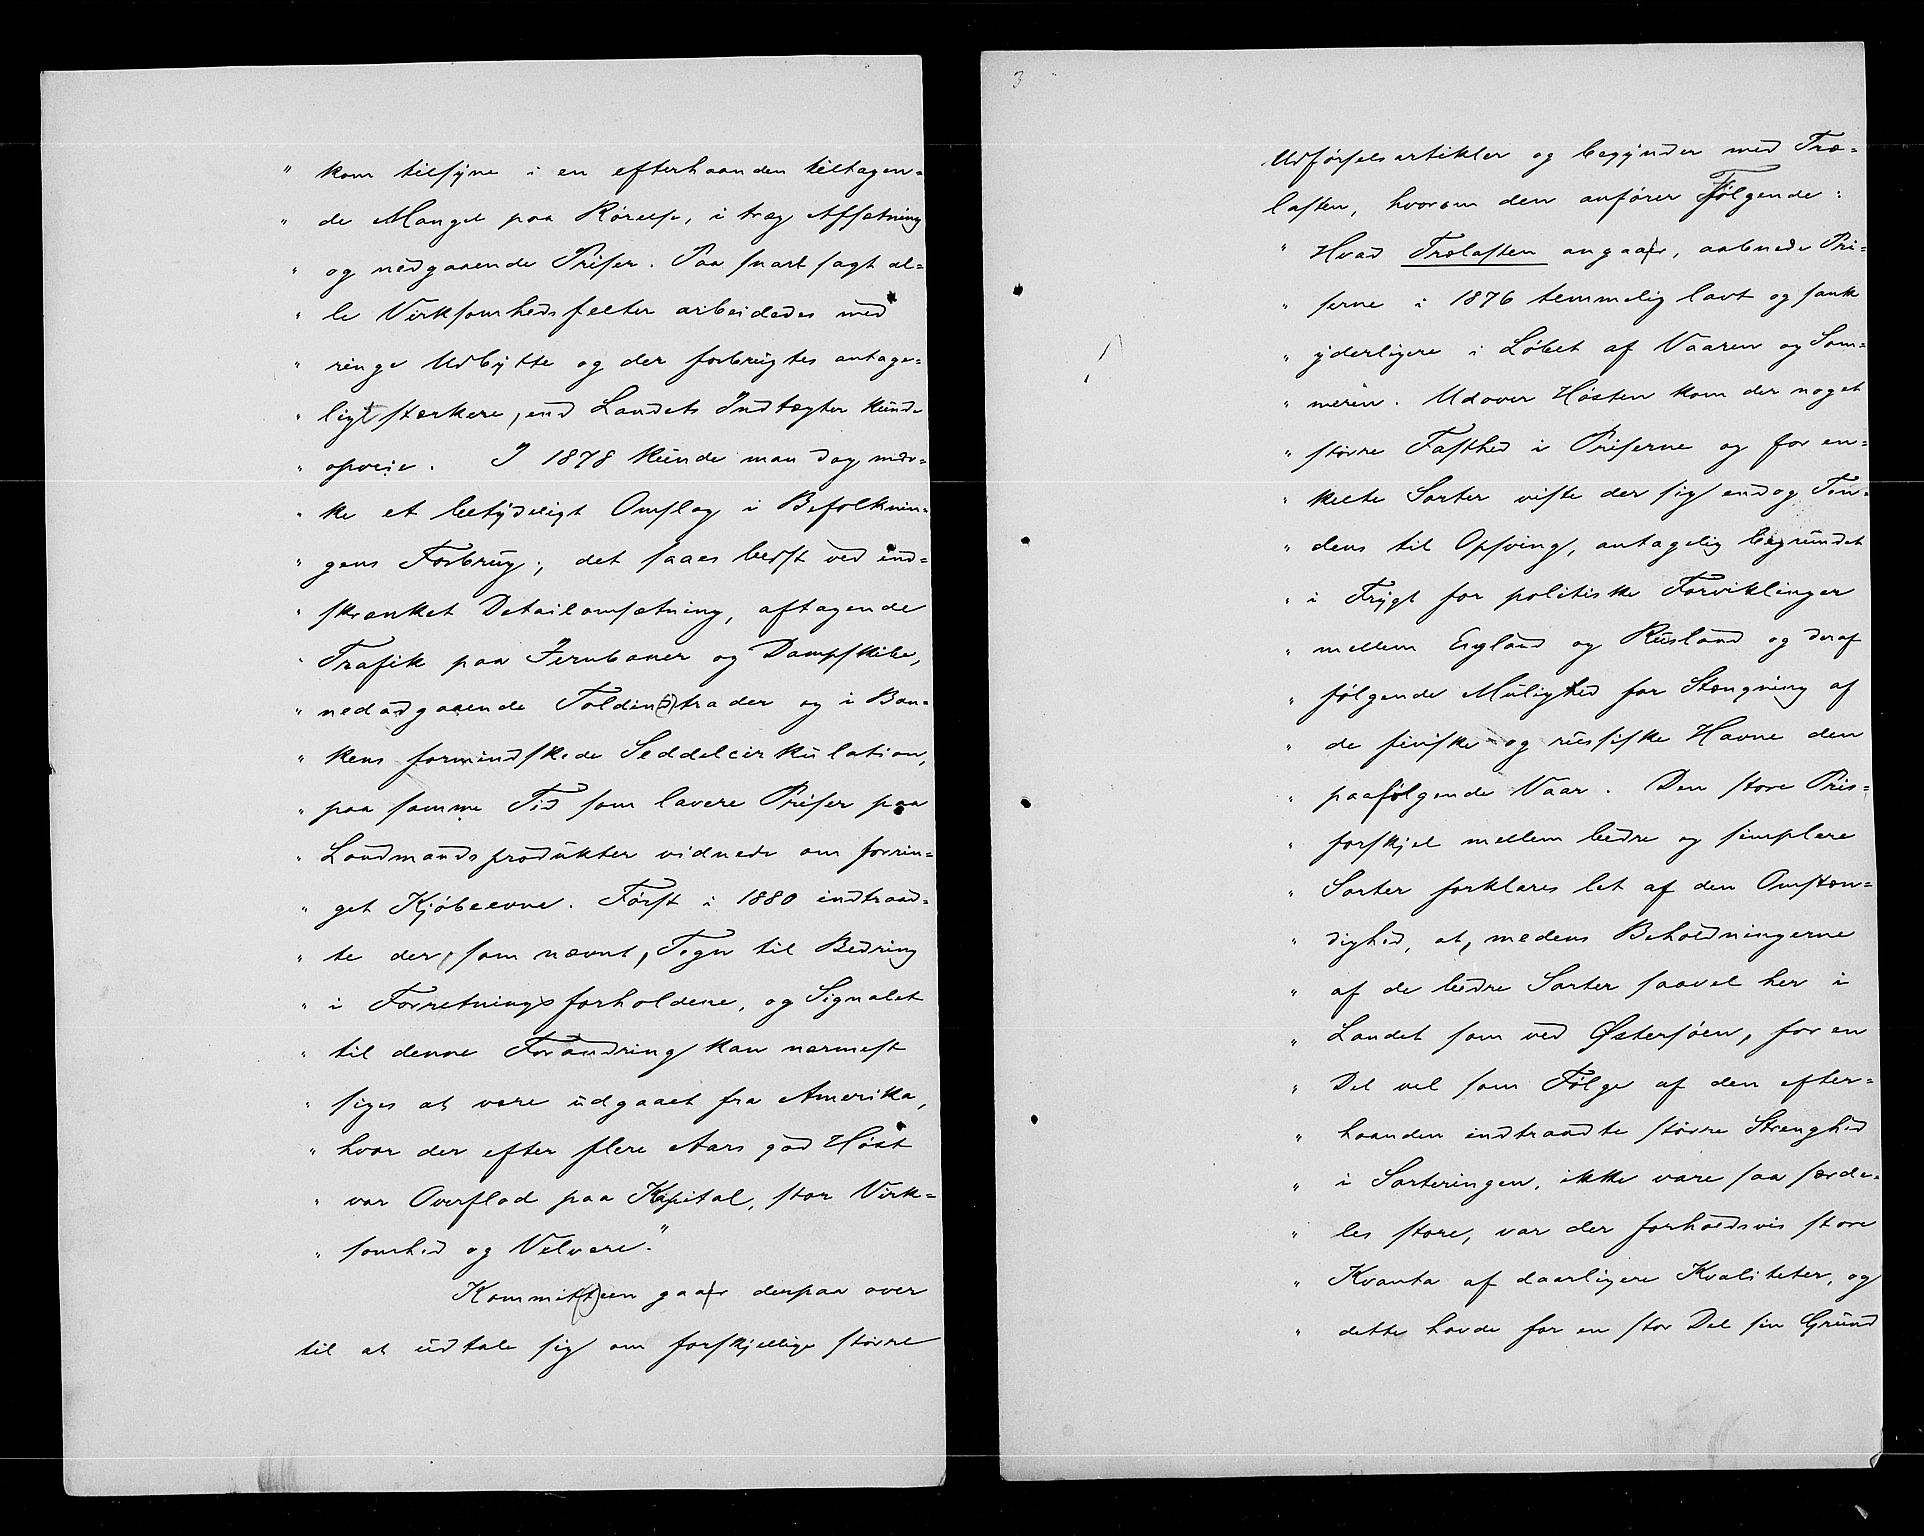 " kom tilsyne i en efterhaanden tiltagen=
" de Mangel paa Rørelse, i træg Afsætning
" og nedgaaende Priser. Paa snart sagt al=
" le Virksomhedsfelter arbeidedes med
" ringe Udbytte og der forbrugtes antage=
" ligt stærkere, end Landets Indtægter kunde
" opveie. I 1878 kunde man dog mær=
" ke et betydeligt Omslag i Befolknin=
" gens Forbrug; det saaes bedst ved ind=
" skrænket Detailomsætning, aftagende
" Trafik paa Jernbaner og Dampskibe,
" nedadgaaende Toldin(d)trader og i Ban=
" kens formindskede Seddelcirkulation,
" paa samme Tid som lavere Priser paa
" Landmandsprodukter vidnede om forrin=
" get Kjøbeevne. Først i 1880 indtraad=
" te der, som nævnt, Tegn til Bedring
" i Forretningsforholdene, og Signalet
" til denne Forandring kan nærmest
" siges at være udgaaet fra Amerika,
" hvor der efter flere Aars god Høst
" var Overflod paa Kapital, stor Virk=
" somhed og Velvære."
Kommit(t)een gaar derpaa over
til at udtale sig om forskjellige større
3
Udførselsartikler og begynder med Træ=
lasten, hvorom den anfører Følgende:
" Hvad Trælasten angaar, aabnede Pri=
" serne i 1876 temmelig lavt og sank
" yderligere i Løbet af Vaaren og Som=
" meren. Udover Høsten kom der noget
" større Fasthed i Priserne og for en=
" kelte Sorter viste der sig endog Ten=
" dens til Opsving, antagelig begrundet
" i Frygt for politiske Forviklinger
" mellem England og Rusland og deraf
" følgende Mulighed for Stængning af
" de finske og russiske Havne den
" paafølgende Vaar. Den store Pris=
" forskjel mellem bedre og simplere
" Sorter forklares let af den Omstæn=
" dighed, at, medens Beholdningerne
" af de bedre Sorter saavel her i
" Landet som ved Østersøen, for en
" Del vel som Følge af den efter=
" haanden indtraadte større Strenghed
" i Sorteringen, ikke vare saa særde=
" les store, var der forholdsvis store
" Kvanta af daarligere Kvaliteter, og
" dette havde for en stor Del sin Grund